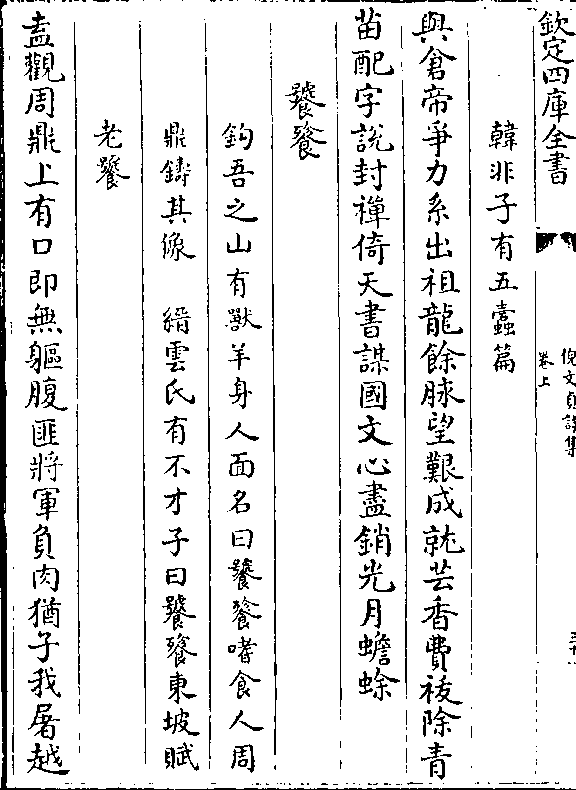 欽定四庫全書
倪文貞詩集
卷上
韓非子有五蠹篇
與倉帝爭力系出祖龍餘脉望艱成就芸香費祓除青
苗配字說封禪倚天書謀國文心盡銷光月蟾蜍
饕餮
鈎吾之山有獸羊身人面名曰饕餮嗜食人周
鼎鑄其像 縉雲氏有不才子曰饕餮東坡賦
老饕
盍觀周鼎上有口即無軀腹匪將軍負肉猶子我屠越